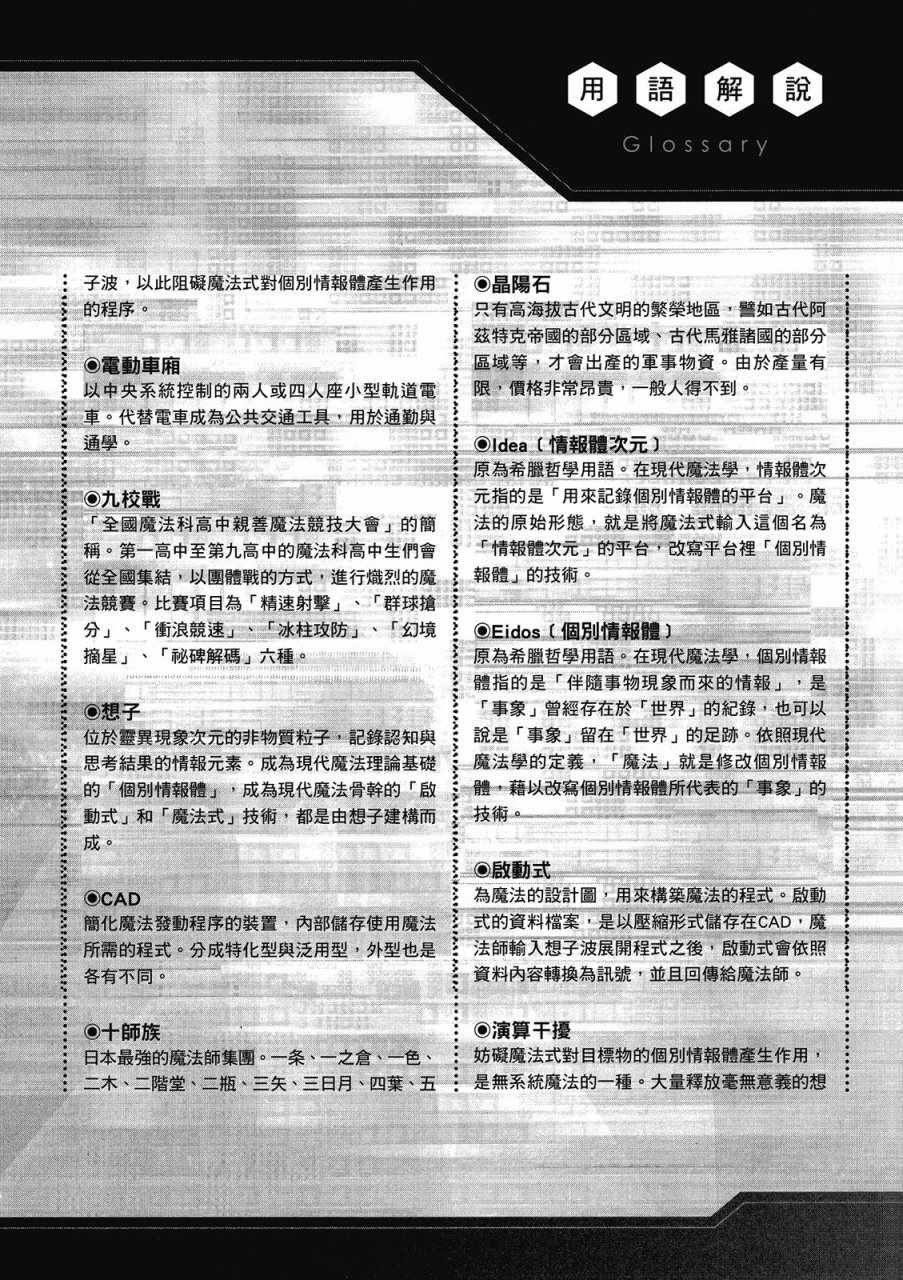 用語解說
Glossary
◉晶陽石
只有高海拔古代文明的繁榮地區，譬如古代阿
茲特克帝國的部分區域、古代馬雅諸國的部分
區域等，才會出產的軍事物資。由於產量有
限，價格非常昂貴，一般人得不到。
◉Idea﹝情報體次元﹞
原為希臘哲學用語。在現代魔法學，情報體次
元指的是「用來記錄個別情報體的平台」。魔
法的原始形態，就是將魔法式輸入這個名為
「情報體次元」的平台，改寫平台裡「個別情
報體」的技術。
◉Eidos﹝個別情報體﹞
原為希臘哲學用語。在現代魔法學，個別情報
體指的是「伴隨事物現象而來的情報」，是
「事象」曾經存在於「世界」的紀錄，也可以
說是「事象」留在「世界」的足跡。依照現代
魔法學的定義，「魔法」就是修改個別情報
體，藉以改寫個別情報體所代表的「事象」的
技術。
◉啟動式
為魔法的設計圖，用來構築魔法的程式。啟動
式的資料檔案，是以壓縮形式儲存在CAD，魔
法師輸入想子波展開程式之後，啟動式會依照
資料內容轉換為訊號，並且回傳給魔法師。
◉演算干擾
妨礙魔法式對目標物的個別情報體產生作用，
是無系統魔法的一種。大量釋放毫無意義的想
子波，以此阻礙魔法式對個別情報體產生作用
的程序。
◉電動車廂
以中央系統控制的兩人或四人座小型軌道電
車。代替電車成為公共交通工具，用於通勤與
通學。
◉九校戰
「全國魔法科高中親善魔法競技大會」的簡
稱。第一高中至第九高中的魔法科高中生們會
從全國集結，以團體戰的方式，進行熾烈的魔
法競賽。比賽項目為「精速射擊」、「群球搶
分」、「衝浪競速」、「冰柱攻防」、「幻境
摘星」、「祕碑解碼」六種。
◉想子
位於靈異現象次元的非物質粒子，記錄認知與
思考結果的情報元素。成為現代魔法理論基礎
的「個別情報體」，成為現代魔法骨幹的「啟
動式」和「魔法式」技術，都是由想子建構而
成。
◉CAD
簡化魔法發動程序的裝置，內部儲存使用魔法
所需的程式。分成特化型與泛用型，外型也是
各有不同。
◉十師族
日本最強的魔法師集團。一条、一之倉、一色、
二木、二階堂、二瓶、三矢、三日月、四葉、五